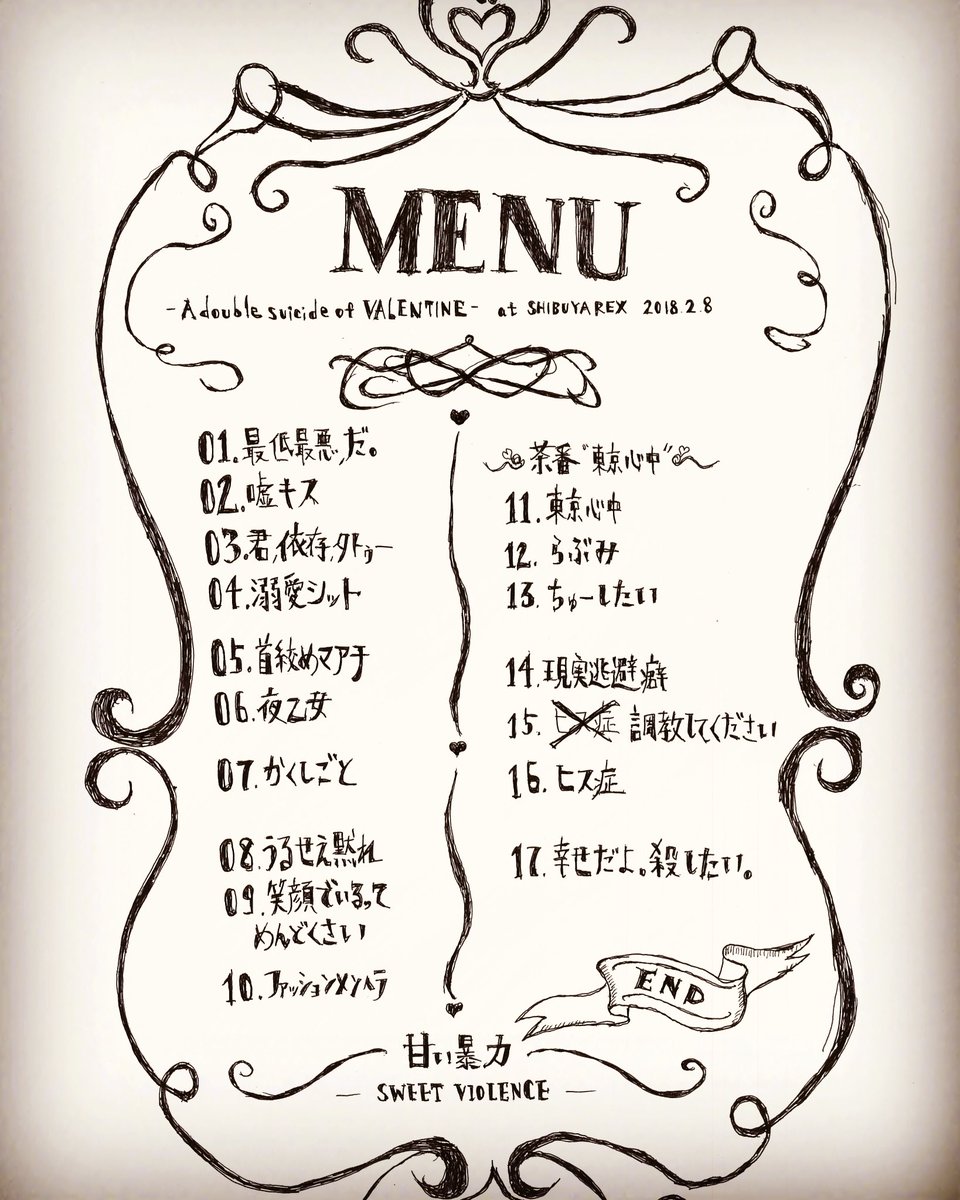 MENU
-A double suicide of VALENTINE- at SHIBUYA REX 2018.2.8
01.最低最悪、だ。
02.嘘キス
03.君、依存、タトゥー
04.溺愛シット
05.首絞めマアチ
06.夜乙女
07.かくしごと
08.うるせえ黙れ
09.笑顔でいるって
めんどくさい
10.ファッションメンヘラ
茶番"東京心中"
11.東京心中
12.らぶみ
13.ちゅーしたい
14.現実逃避癖
15.ヒス症 調教してください
16.ヒス症
17.幸せだよ。殺したい。
END
甘い暴力
— SWEET VIOLENCE —